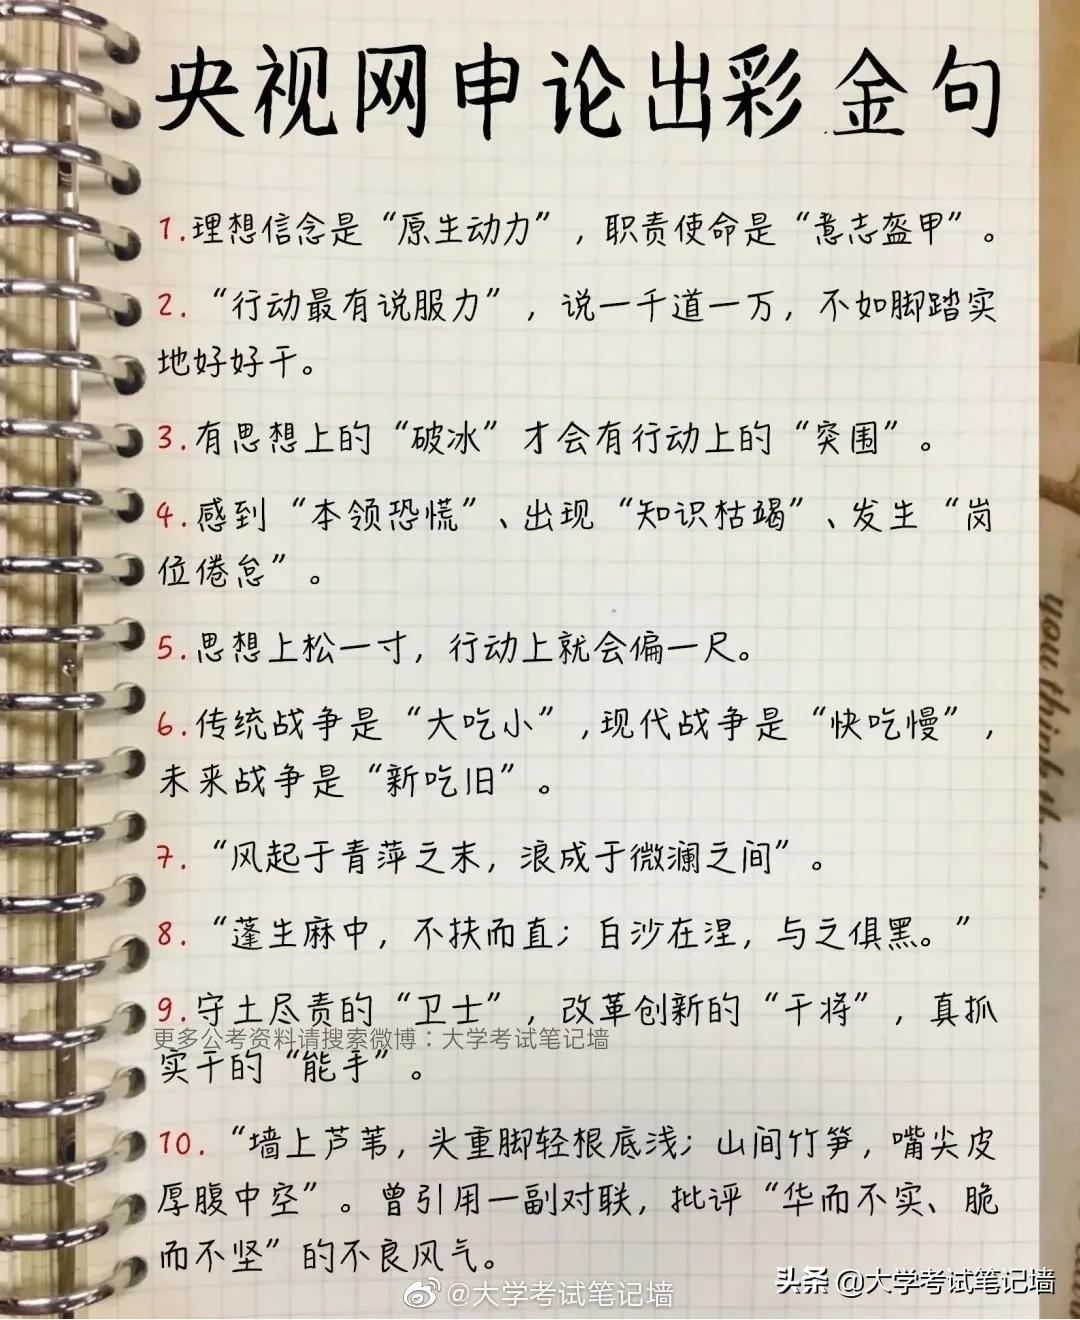 央视网申论出彩金句
1.理想信念是“原生动力”，职责使命是“意志盔甲”。
2.“行动最有说服力”，说一千道一万，不如脚踏实
地好好干。
3.有思想上的“破冰”才会有行动上的“突围”。
4.感到“本领恐慌”、出现“知识枯竭”、发生“岗
位倦怠”。
5.思想上松一寸，行动上就会偏一尺。
6.传统战争是“大吃小”,现代战争是“快吃慢”，
未来战争是“新吃旧”。
7.“风起于青萍之末，浪成于微澜之间”。
8.“蓬生麻中，不扶而直；白沙在涅，与之俱黑。”
9.守土尽责的“卫士”，改革创新的“干将”，真抓
更多公考资料请搜索微博：大学考试笔记墙
实干的“能手”。
10.“墙上芦苇，头重脚轻根底浅；山间竹笋，嘴尖皮
厚腹中空”。曾引用一副对联，批评“华而不实、脆
而不坚”的不良风气。
@大学考试笔记墙
头条 @大学考试笔记墙
you think